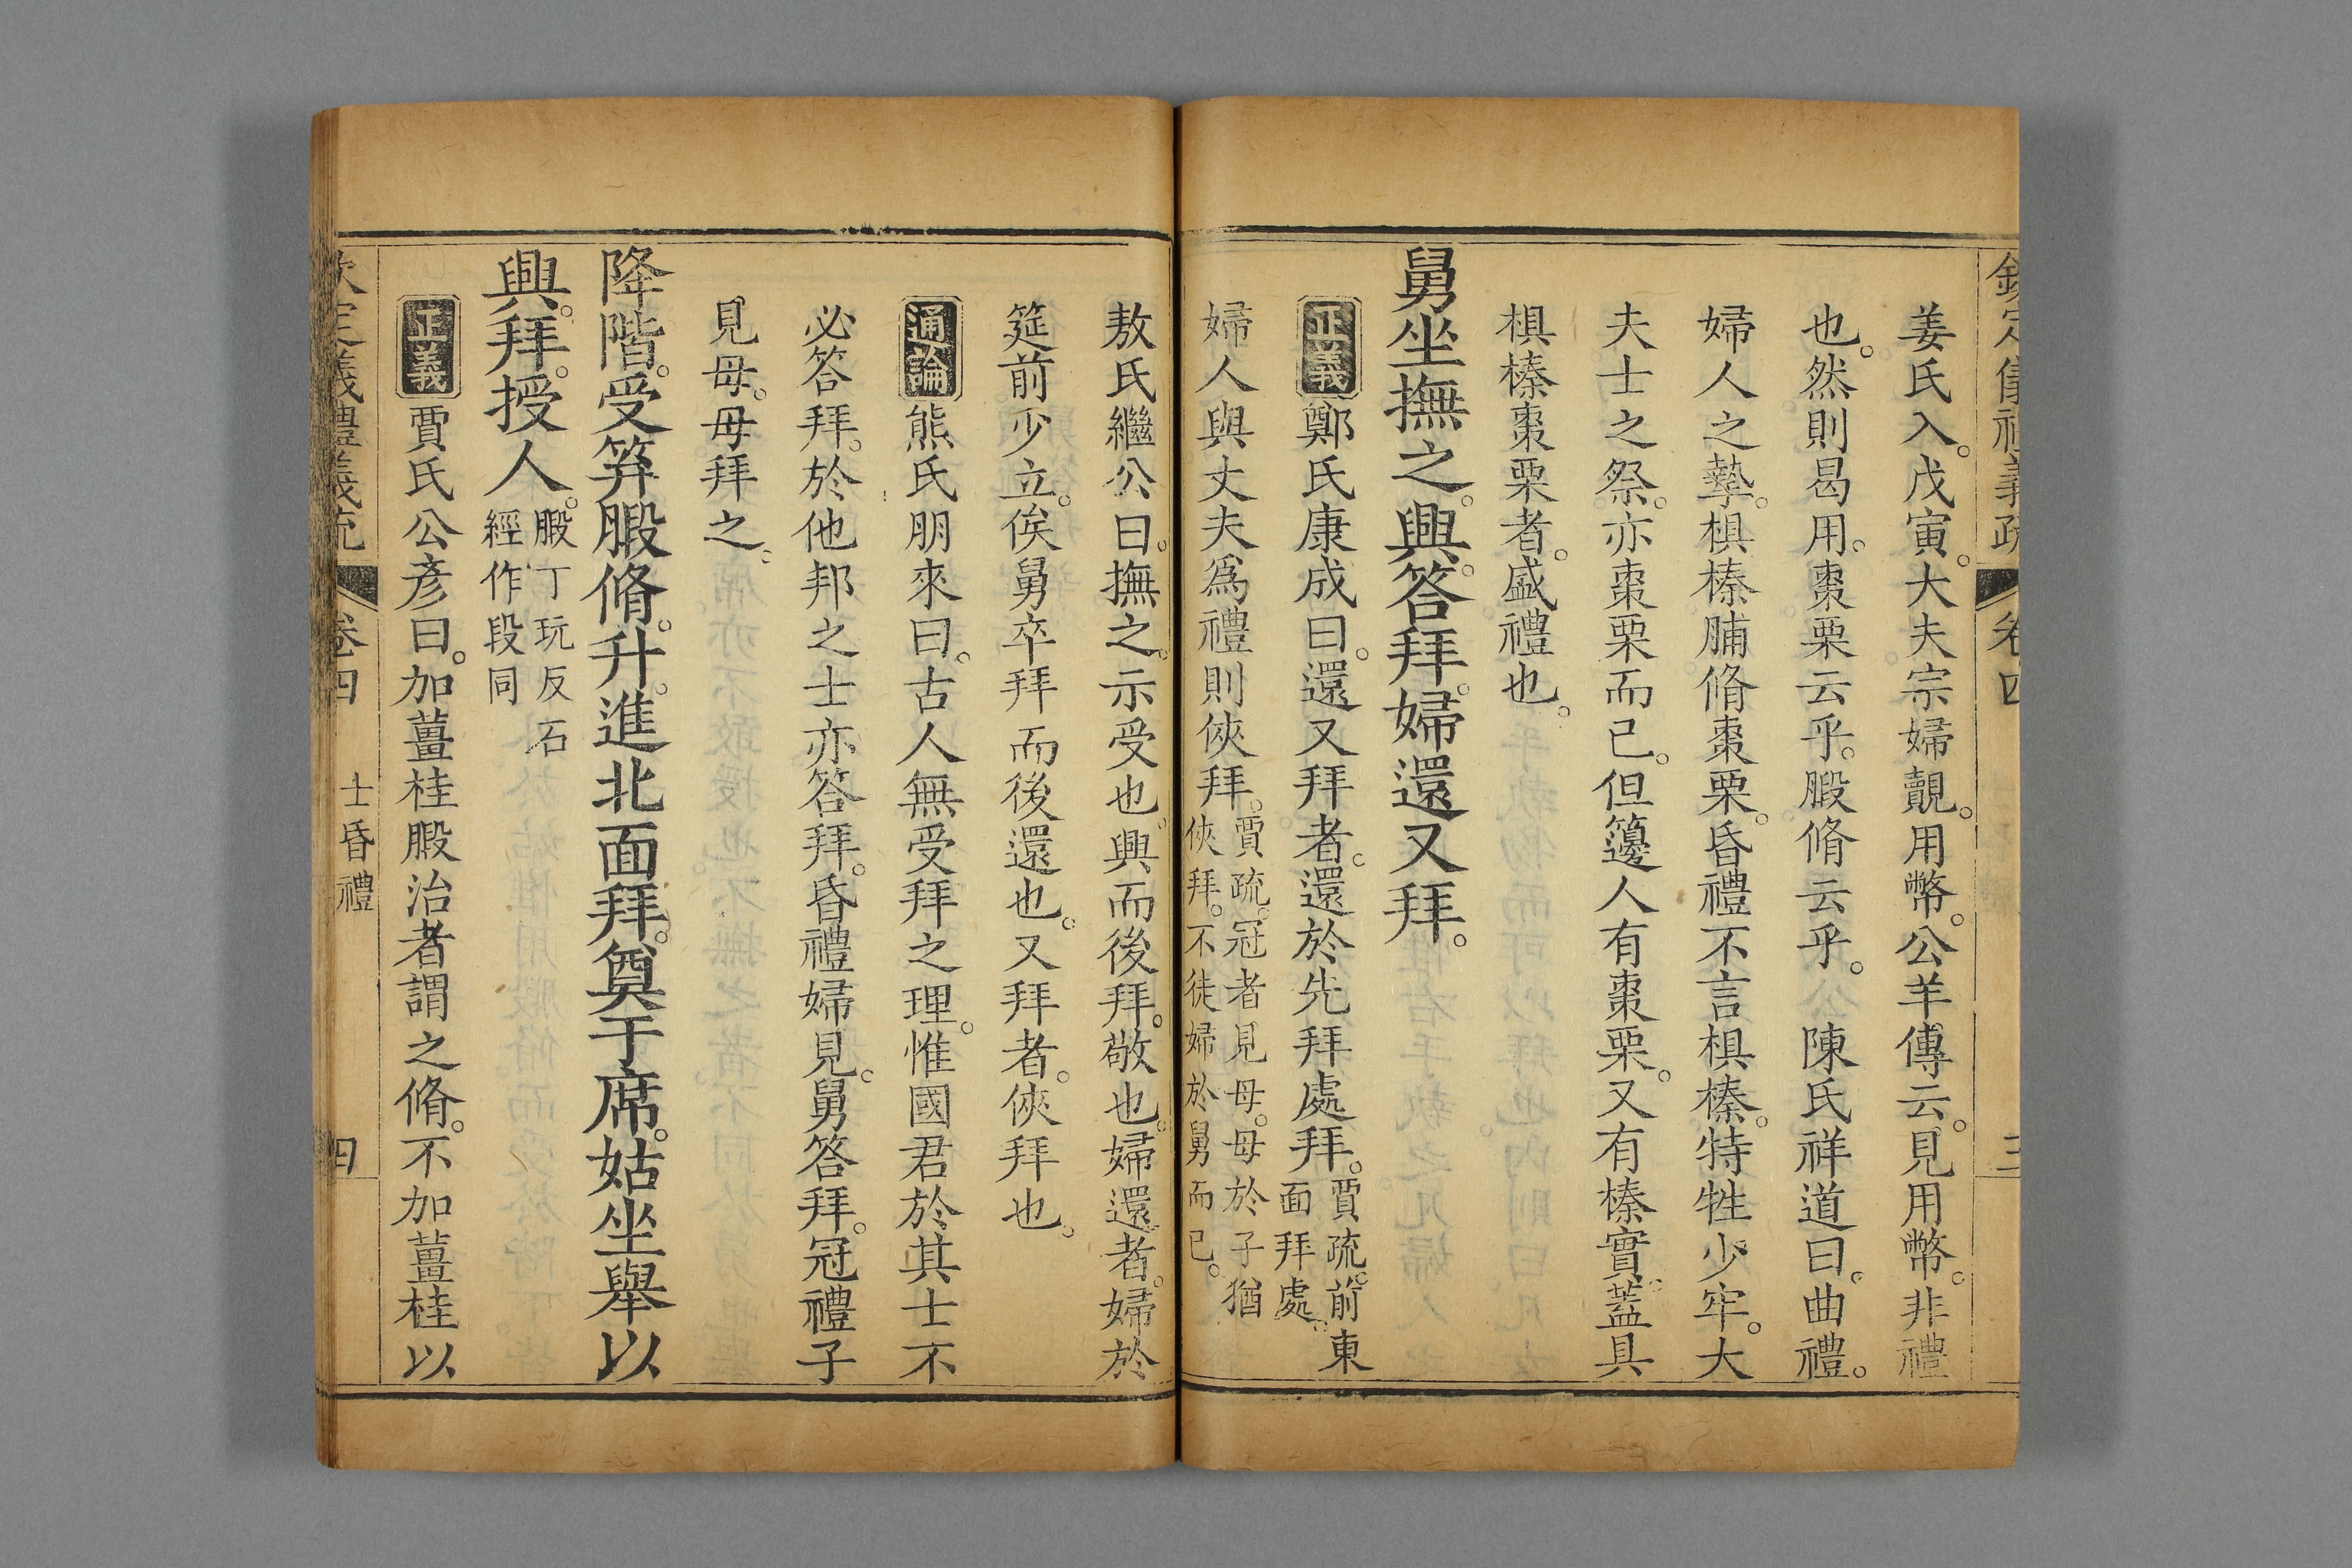 欽定儀禮義疏 卷四 三
姜氏入。戊寅。大夫宗婦覿。用幣。公羊傳云。見用幣。非禮
也。然則曷用。棗栗云乎。腶脩云乎。 陳氏祥道曰。曲禮。
婦人之摯。椇榛脯脩棗栗。昏禮不言椇榛。特牲少牢。大
夫士之祭。亦棗栗而已。但籩人有棗栗。又有榛實。蓋具
椇榛棗栗者。盛禮也。
舅坐撫之。興。答拜。婦還又拜。
正義 鄭氏康成曰。還又拜者。還於先拜處拜。賈疏。前東
面拜處。
婦人與丈夫爲禮則俠拜。賈疏。冠者見母。母於子猶
俠拜。不徒婦於舅而已。
敖氏繼公曰。撫之。示受也。興而後拜。敬也。婦還者。婦於
筵前少立。俟舅卒拜而後還也。又拜者。俠拜也。
通論 熊氏朋來曰。古人無受拜之理。惟國君於其士不
必答拜。於他邦之士亦答拜。昏禮婦見。舅答拜。冠禮子
見母。母拜之。
降階。受笲腶脩。升。進北面拜。奠于席。姑坐舉以
興。拜。授人。腶丁玩反石
經作段同
正義 賈氏公彥曰。加薑桂腶治者謂之脩。不加薑桂以
欽定儀禮義疏 卷四 士昏禮 四